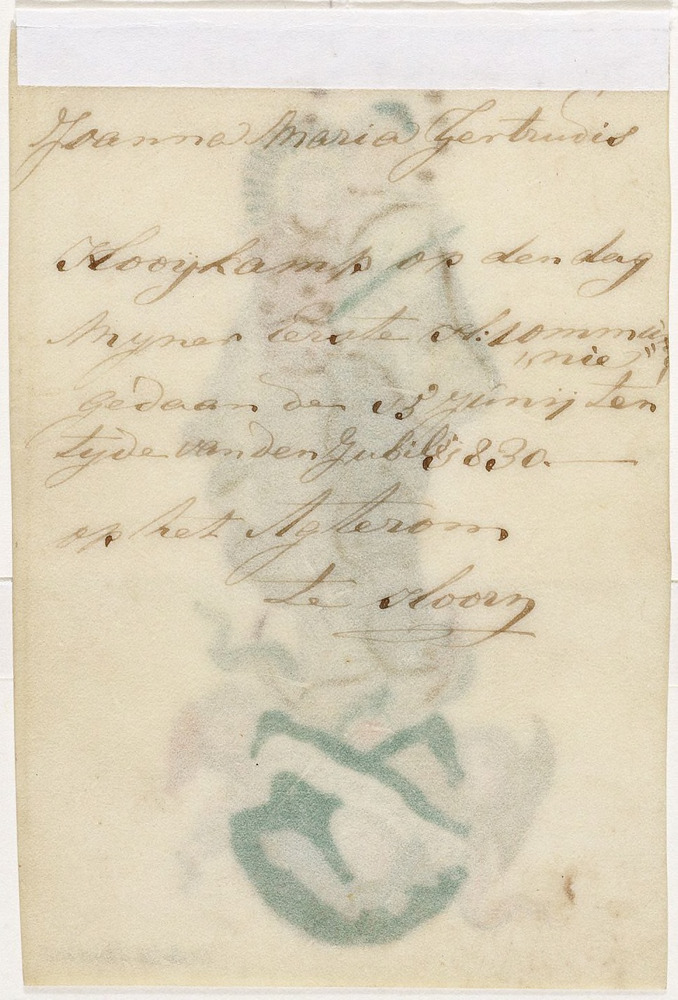 Joanna Maria Gertrudis
Hooijkamp op den dag
Mijner Eerste H: Commu
„nie”
gedaan de 13 Junij ten
tijde van den Jubilé 1830.
op het Agterom
te Hoorn